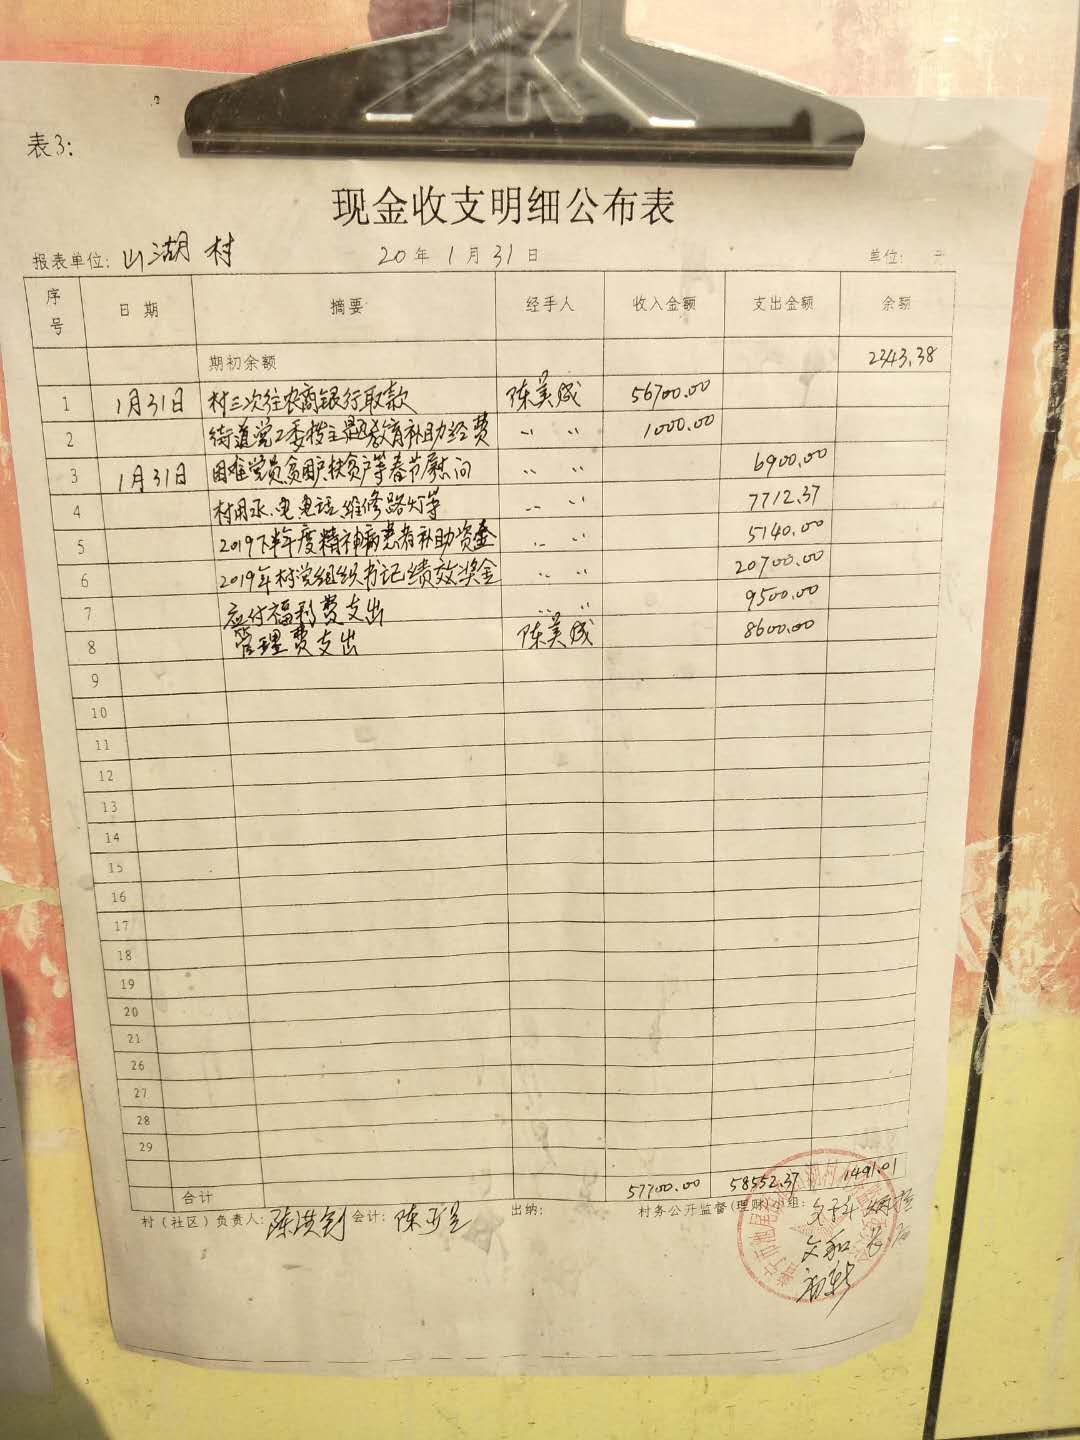 表3:
现金收支明细公布表
报表单位: 山湖村 20年1月31日 单位: 元
序号 日期 摘要 经手人 收入金额 支出金额 余额
期初余额 2343.38
1 1月31日 村三次往农商银行取款 陈美城 56700.00
2 街道党工委拨主题教育补助经费 〃 〃 1000.00
3 1月31日 困难党员、贫困户、扶贫户等春节慰问 〃 〃 6900.00
4 村用水、电、电话、维修路灯等 〃 〃 7712.37
5 2019下半年度精神病患者补助资金 〃 〃 5140.00
6 2019年村党组织书记绩效奖金 〃 〃 20700.00
7 应付福利费支出 〃 〃 9500.00
8 管理费支出 陈美城 8600.00
9
10
11
12
13
14
15
16
17
18
19
20
21
26
27
28
29
合计 57700.00 58552.37 1491.01
村(社区)负责人: 陈洪钊 会计: 出纳: 村务公开监督(理财)小组:
文和